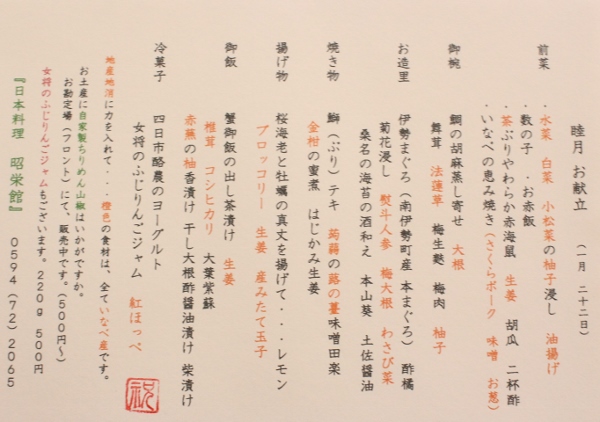 睦月 お献立 (一月 二十二日)
前菜 ・水菜 白菜 小松菜の柚子浸し 油揚げ
・数の子 ・お赤飯
・茶ぶりやわらか赤海鼠 生姜 胡瓜 二杯酢
・いなべの恵み焼き(さくらポーク 味噌 お葱)
御椀 鯛の胡麻蒸し寄せ 大根
舞茸 法蓮草 梅生麩 梅肉 柚子
お造里 伊勢まぐろ(南伊勢町産 本まぐろ) 酢橘
菊花浸し 熨斗人参 梅大根 わさび菜
桑名の海苔の酒和え 本山葵 土佐醤油
焼き物 鰤(ぶり)テキ 蒟蒻の蕗の薹味噌田楽
金柑の蜜煮 はじかみ生姜
揚げ物 桜海老と牡蠣の真丈を揚げて・・・レモン
ブロッコリー 生姜 産みたて玉子
御飯 蟹御飯の出し茶漬け 生姜
椎茸 コシヒカリ 大葉紫蘇
赤蕪の柚香漬け 干し大根酢醤油漬け 柴漬け
冷菓子 四日市酪農のヨーグルト
女将のふじりんごジャム 紅ほっぺ
祝
地産地消に力を入れて・・・橙色の食材は、全ていなべ産です。
お土産に自家製ちりめん山椒はいかがですか。
お勘定場(フロント)にて、販売中です。(500円~)
女将のふじりんごジャムもございます。220g 500円
『日本料理 昭栄館』 0594(72)2065